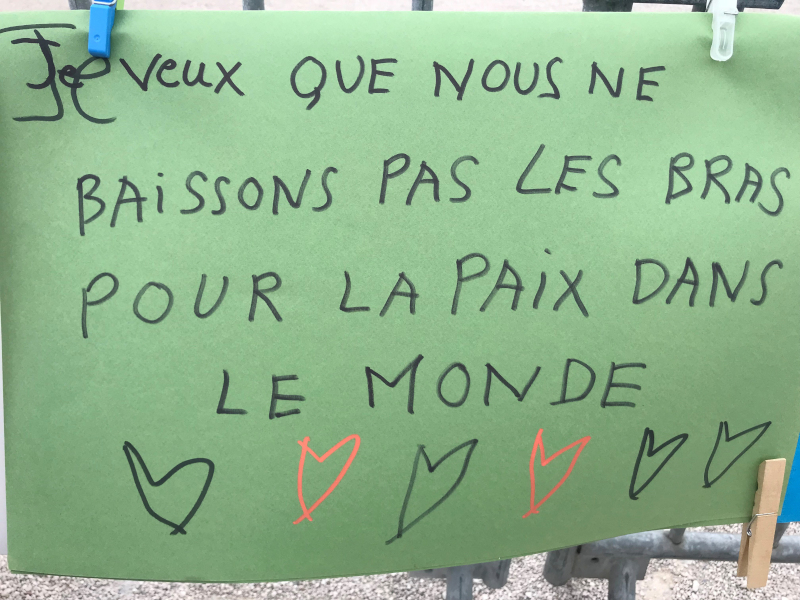 Je veux QUE NOUS NE
BAiSSONS PAS LES BRAS
POUR LA PAiX DANS
LE MONDE